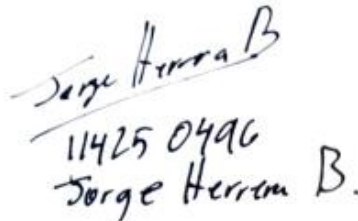 Jorge Herrera B
11425 0496
Jorge Herrera B.